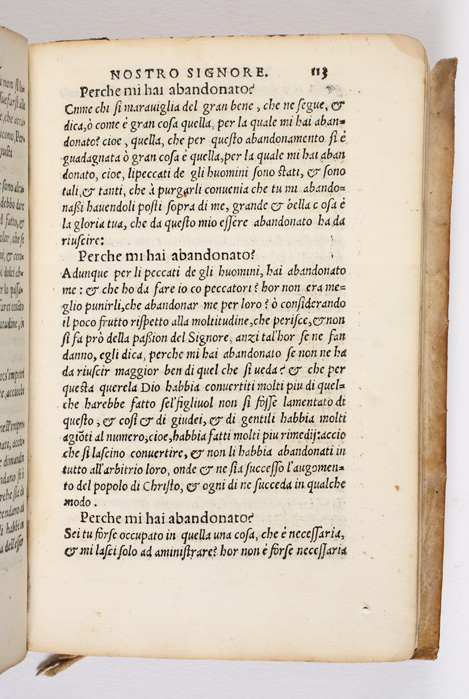 NOSTRO SIGNORE. 113
Perche mi hai abandonato?
Come chi si marauiglia del gran bene, che ne segue, &
dica, ò come è gran cosa quella, per la quale mi hai aban-
donato? cioe, quella, che per questo abandonamento si è
guadagnata ò gran cosa è quella, per la quale mi hai aban
donato, cioe, li peccati de gli huomini sono stati, & sono
tali, & tanti, che à purgarli conuenia che tu mi abando-
nassi hauendoli posti sopra di me, grande & bella cosa è
la gloria tua, che da questo mio essere abandonato ha da
riuscire:
Perche mi hai abandonato?
Adunque per li peccati de gli huomini, hai abandonato
me: & che ho da fare io co peccatori? hor non era me-
glio punirli, che abandonar me per loro? ò considerando
il poco frutto rispetto alla moltitudine, che perisce, & non
si fa prò della passion del Signore, anzi tal'hor se ne fan
danno, egli dica, perche mi hai abandonato se non ne ha
da riuscir maggior ben di quel che si ueda? & che per
questa querela Dio habbia conuertiti molti piu di quel-
che harebbe fatto sel'figliuol non si fosse lamentato di
questo, & così & di giudei, & di gentili habbia molti
agiõti al numero, cioe, habbia fatti molti piu rimedij: accio
che si lascino conuertire, & non li habbia abandonati in
tutto all'arbitrio loro, onde & ne sia successo l'augomen-
to del popolo di Christo, & ogni dì ne succeda in qualche
modo.
Perche mi hai abandonato?
Sei tu forse occupato in quella una cosa, che è necessaria,
& mi lasci solo ad aministrare? hor non è forse necessaria